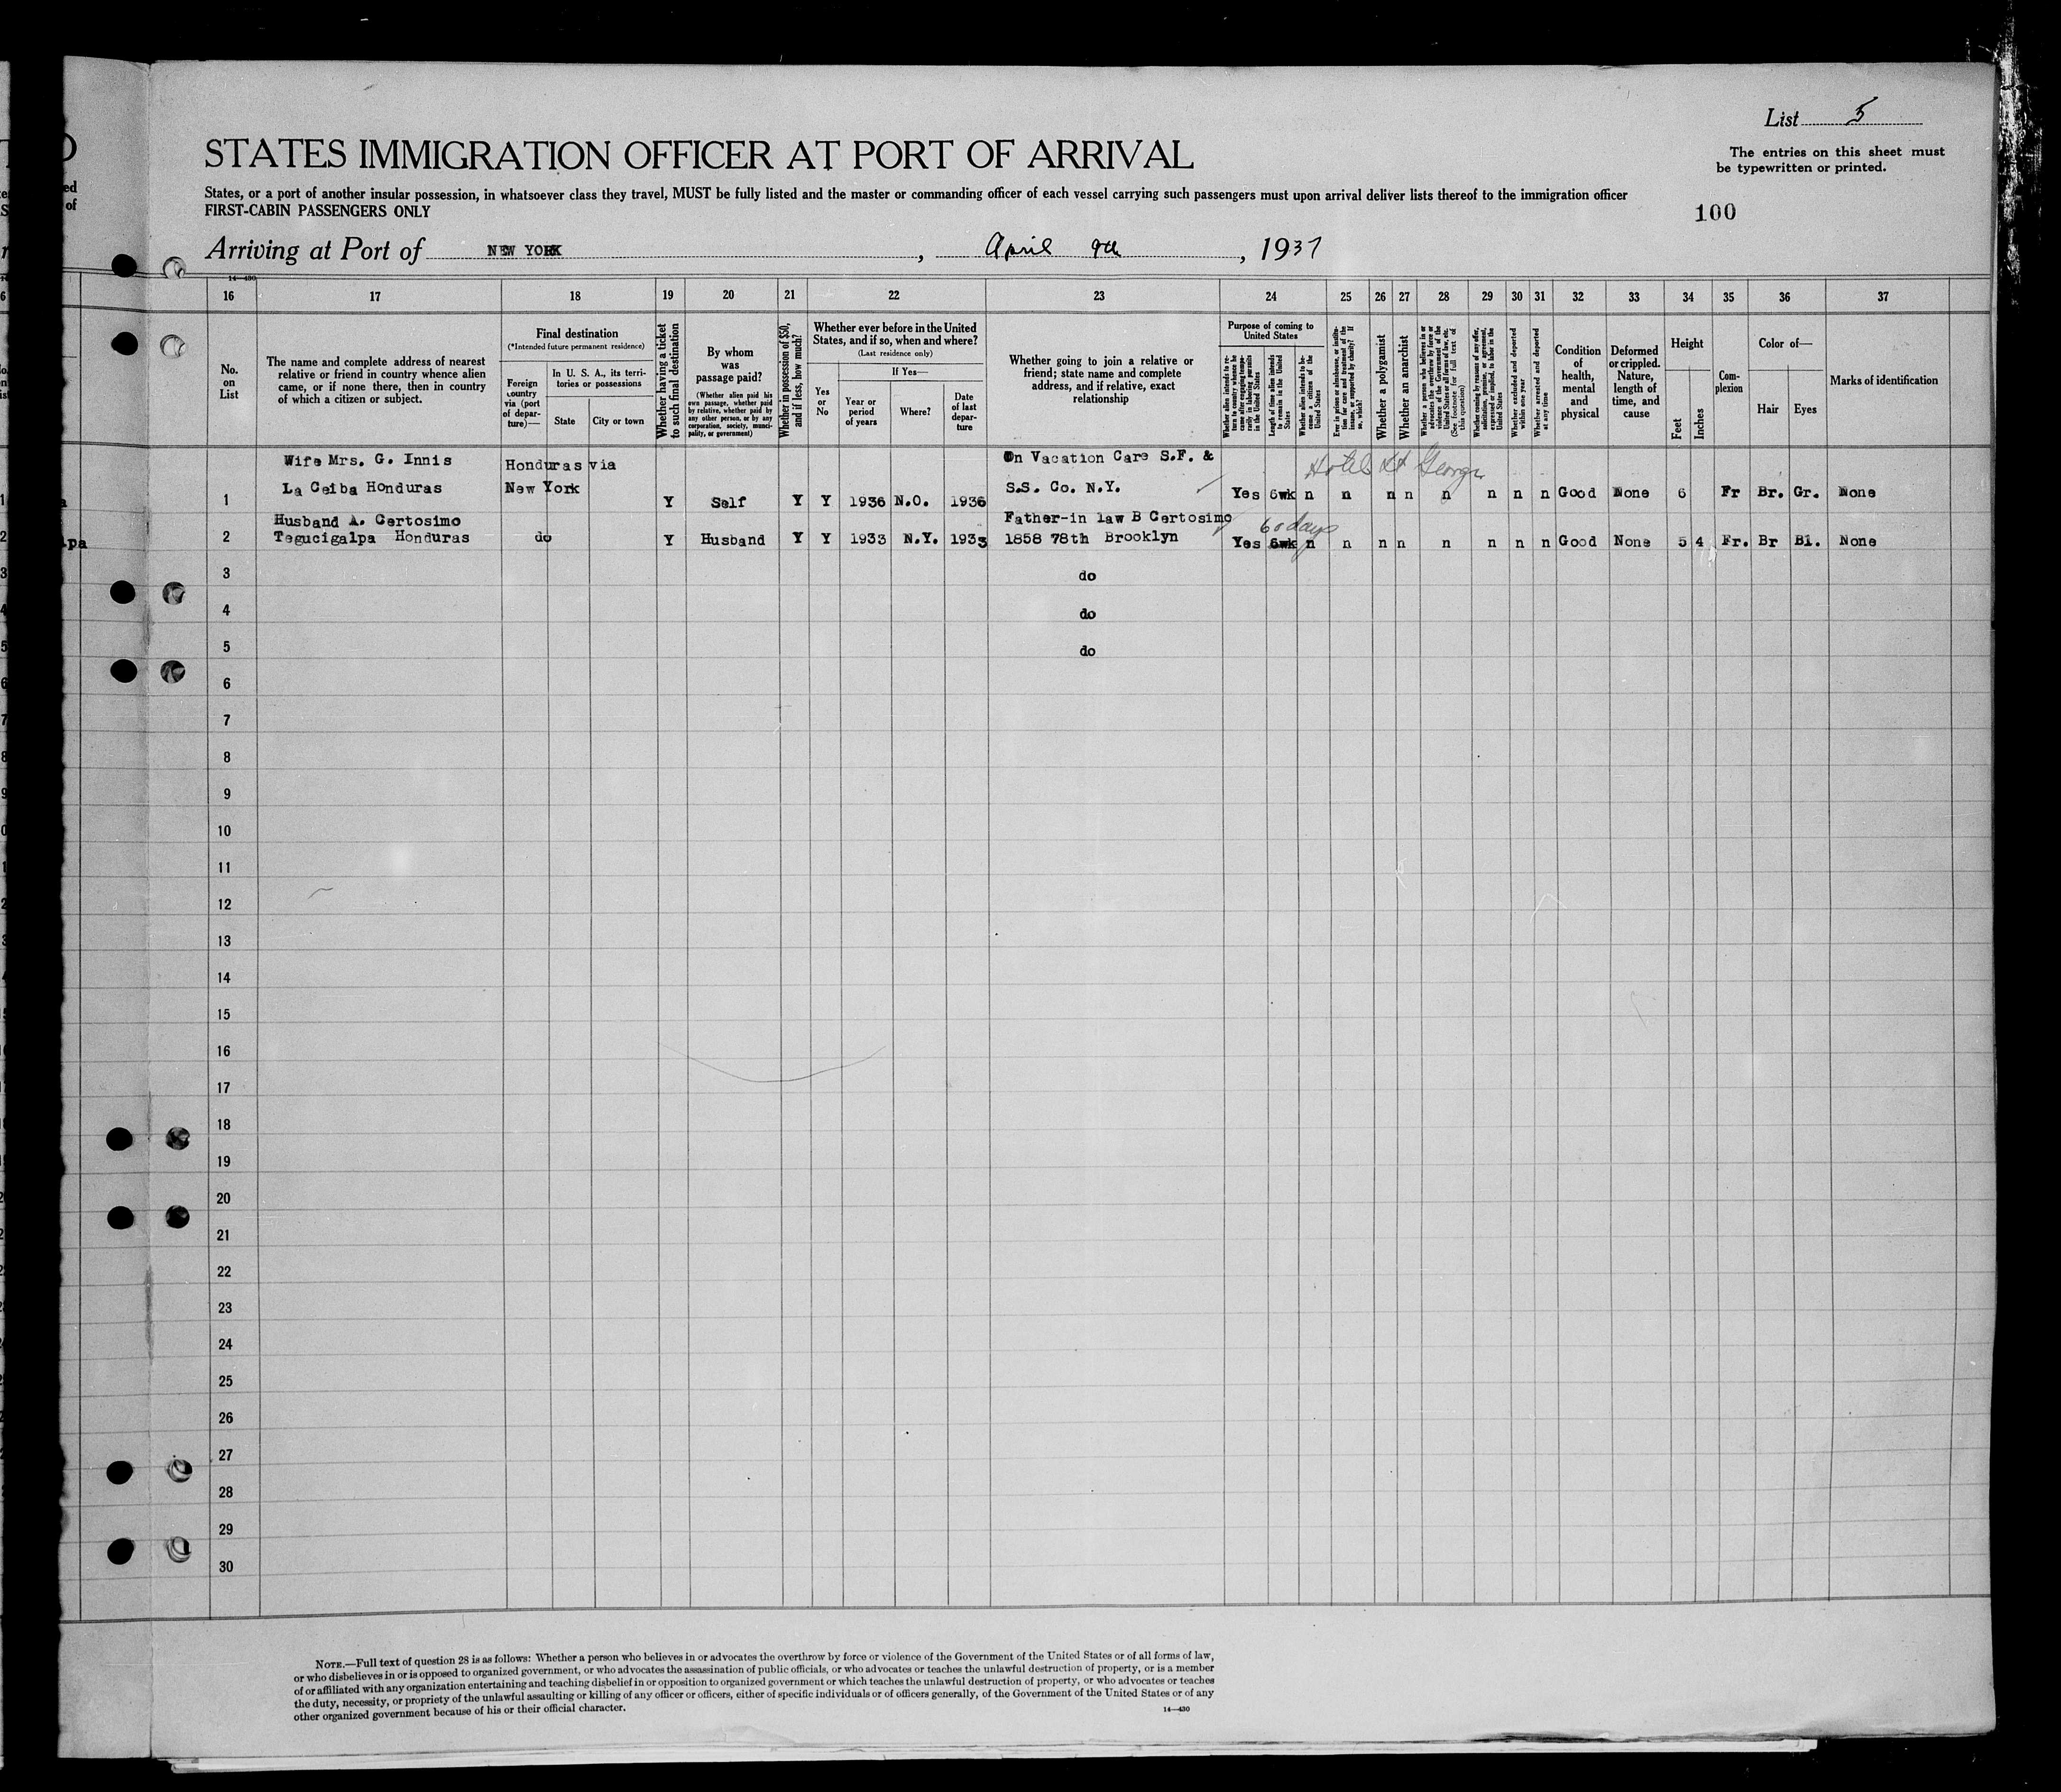 List 5
STATES IMMIGRATION OFFICER AT PORT OF ARRIVAL
The entries on this sheet must
be typewritten or printed.
States, or a port of another insular possession, in whatsoever class they travel, MUST be fully listed and the master or commanding officer of each vessel carrying such passengers must upon arrival deliver lists thereof to the immigration officer
FIRST-CABIN PASSENGERS ONLY
100
Arriving at Port of NEW YORK, April 9th, 1937
14—430
16 17 18 19 20 21 22 23 24 25 26 27 28 29 30 31 32 33 34 35 36 37
No.
on
List
The name and complete address of nearest
relative or friend in country whence alien
came, or if none there, then in country
of which a citizen or subject.
Final destination
(*Intended future permanent residence)
Foreign
country
via (port
of depar-
ture)—
In U. S. A., its terri-
tories or possessions
State
City or town
Whether having a ticket
to such final destination
By whom
was
passage paid?
(Whether alien paid his
own passage, whether paid
by relative, whether paid by
any other person, or by any
corporation, society, munici-
pality, or government)
Whether in possession of $50,
and if less, how much?
Whether ever before in the United
States, and if so, when and where?
(Last residence only)
Yes
or
No
If Yes—
Year or
period
of years
Where?
Date
of last
depar-
ture
Whether going to join a relative or
friend; state name and complete
address, and if relative, exact
relationship
Purpose of coming to
United States
Whether alien intends to re-
turn to country whence he
came after engaging tempo-
rarily in laboring pursuits
in the United States
Length of time alien intends
to remain in the United
States
Whether alien intends to be-
come a citizen of the
United States
Ever in prison or almshouse, or institu-
tion for care and treatment of the
insane, or supported by charity? If
so, which?
Whether a polygamist
Whether an anarchist
Whether a person who believes in or
advocates the overthrow by force or
violence of the Government of the
United States or all forms of law, etc.
(See footnote for full text of
this question)
Whether coming by reason of any offer,
solicitation, promise, or agreement,
expressed or implied, to labor in the
United States
Whether excluded and deported
within one year
Whether arrested and deported
at any time
Condition
of
health,
mental
and
physical
Deformed
or crippled.
Nature,
length of
time, and
cause
Height
Feet
Inches
Com-
plexion
Color of—
Hair
Eyes
Marks of identification
Wife Mrs. G. Innis Honduras via On Vacation Care S.F. & Hotel St George
1 La Ceiba Honduras New York Y Self Y Y 1936 N.O. 1936 S.S. Co. N.Y. Yes 6wk n n n n n n n n Good None 6 Fr Br. Gr. None
Husband A. Certosimo Father-in law B Certosimo 60 days
2 Tegucigalpa Honduras do Y Husband Y Y 1933 N.Y. 1933 1858 78th Brooklyn Yes 6wk n n n n n n n n Good None 5 4 Fr. Br Bl. None
3 do
4 do
5 do
6
7
8
9
10
11
12
13
14
15
16
17
18
19
20
21
22
23
24
25
26
27
28
29
30
NOTE.—Full text of question 28 is as follows: Whether a person who believes in or advocates the overthrow by force or violence of the Government of the United States or of all forms of law,
or who disbelieves in or is opposed to organized government, or who advocates the assassination of public officials, or who advocates or teaches the unlawful destruction of property, or is a member
of or affiliated with any organization entertaining and teaching disbelief in or opposition to organized government or which teaches the unlawful destruction of property, or who advocates or teaches
the duty, necessity, or propriety of the unlawful assaulting or killing of any officer or officers, either of specific individuals or of officers generally, of the Government of the United States or of any
other organized government because of his or their official character.
14—430